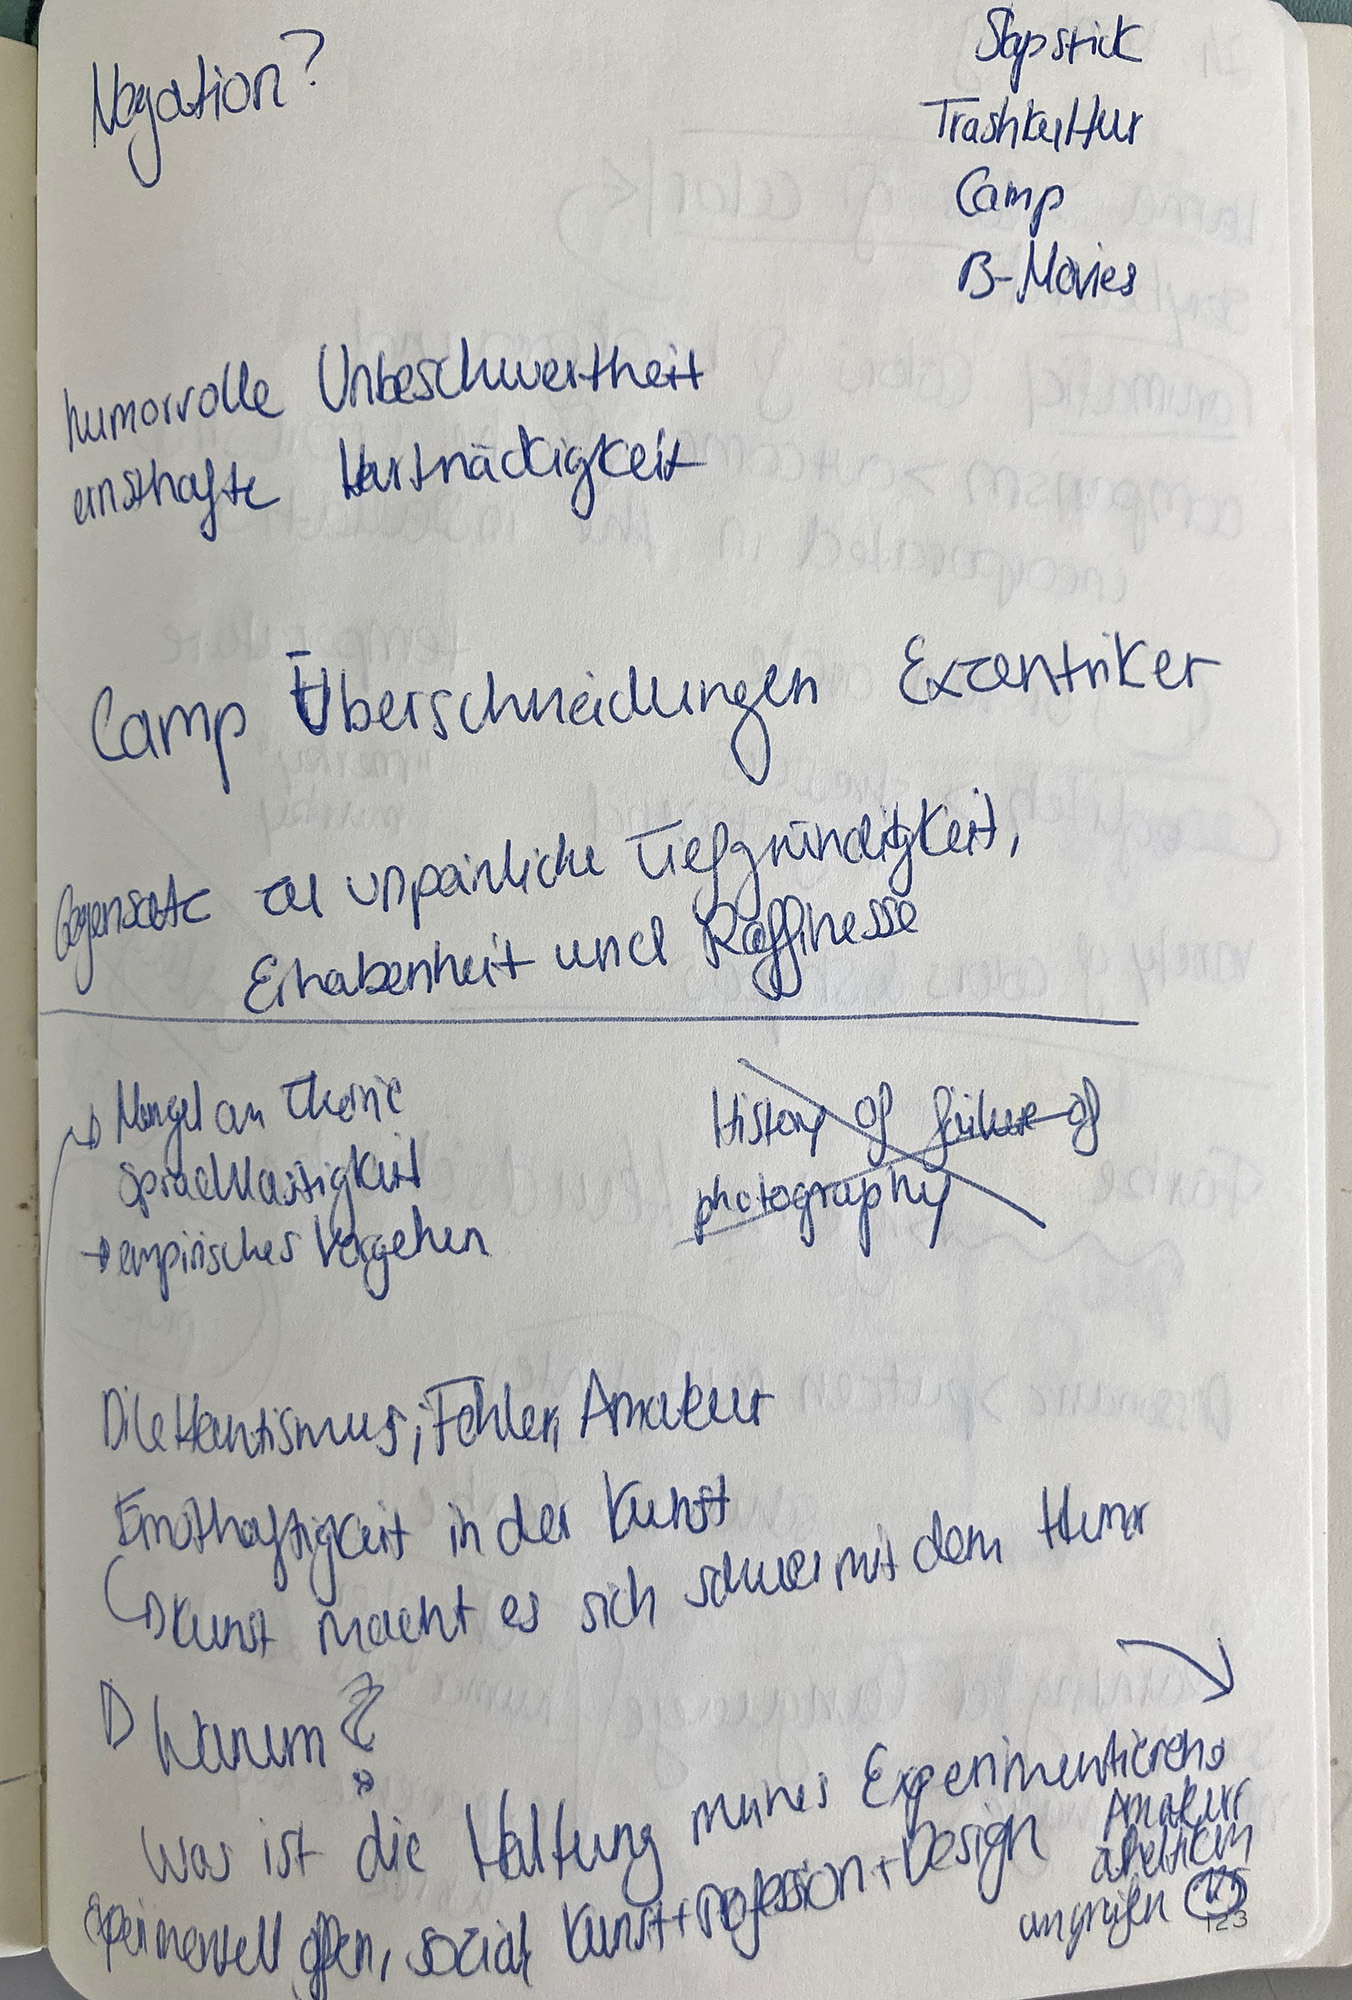 Negation?
Slapstick
Trashkultur
Camp
B-Movies
humorvolle Unbeschwertheit
ernsthafte Hartnäckigkeit
Camp Überschneidungen Exzentriker
Gegensatz zu unpeinliche Tiefgründigkeit,
Erhabenheit und Raffinesse
→ Mangel an Theorie
Sprachlastigkeit
→ empirisches Vorgehen
History of failure of
photography
Dilettantismus, Fehler, Amateur
Ernsthaftigkeit in der Kunst
↳ Kunst macht es sich schwer mit dem Humor
Warum?
Was ist die Haltung meines Experimentierens
experimentell offen, sozial Kunst + Profession + Design
Amateur
angreifen
123